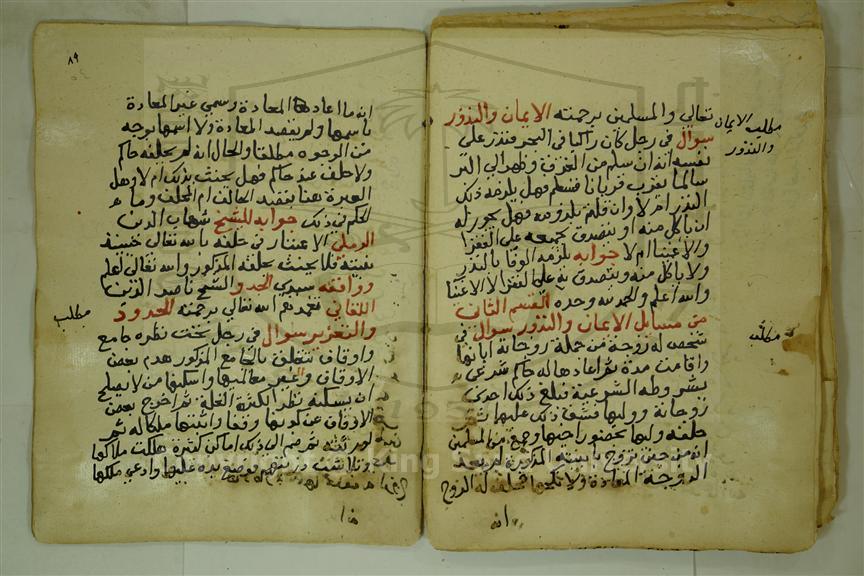 تعالى والمسلمين برحمته الايمان والنذور
مطلب الايمان
والنذور
سوال في رجل كان راكبا في البحر فنذر على
نفسه انه ان سلم من الغرق وظهر الى البر
سالما يقرب قربانا فسلم فهل يلزمه ذلك
النذر ام لا وان قلتم بلزومه فهل يجوز له
ان ياكل منه او يتصدق بجميعه على الفقرا
والاغنيا ام لا جوابه يلزمه الوفا بالنذر
ولا ياكل منه ويتصدق به على الفقرا لا الاغنيا
والله اعلم والحمد لله وحده القسم الثاني
من مسائل الايمان والنذور سوال في
مطلب
شخص له زوجة من جملة زوجاته ابانها
واقامت مدة ثم اعادها له حاكم شرعي
بشروطه الشرعية فبلغ ذلك احدى
زوجاته ووليها فشق ذلك عليها ثم
حلفه وليها بحضور جمع من المسلمين
انه من حين تزوج بابنته المذكورة لم يعد
الزوجة المعادة فحلف له الزوج
انه
٨٩
انه ما اعادها المعادة وسمى غير المعادة
باسمها ولم يقصد المعادة ولا اسمها بوجه
من الوجوه مطلقا والحال انه لم يحلفه حاكم
ولا حلف عند حاكم فهل يحنث بذلك ام لا وهل
العبرة هنا بقصد الحالف ام المحلف وما
الحكم في ذلك جوابه للشيخ شهاب الدين
الرملي الاعتبار في حلفه بالله تعالى
بنيته فلا يحنث بحلفه المذكور والله تعالى اعلم
ووافقه سيدي الجد والشيخ ناصر الدين
اللقاني تغمدهم الله تعالى برحمته الحدود
مطلب
والتعزير سوال في رجل تحت نظره جامع
واوقاف تتعلق بالجامع المذكور هدم بعض
الاوقاف وغير معالمها واسكنها من لا يصلح
ان يسكنه نظرا لكثرة الغلة ثم اخرج بعض
الاوقاف عن كونها وقفا واثبتها ملكا له ثم
لورثته ثم تعرض الى ذلك اماكن كثيرة هلكت ملاكها
وتلاشت ذريتهم فوضع يده عليها وادعى ملكها
هذا